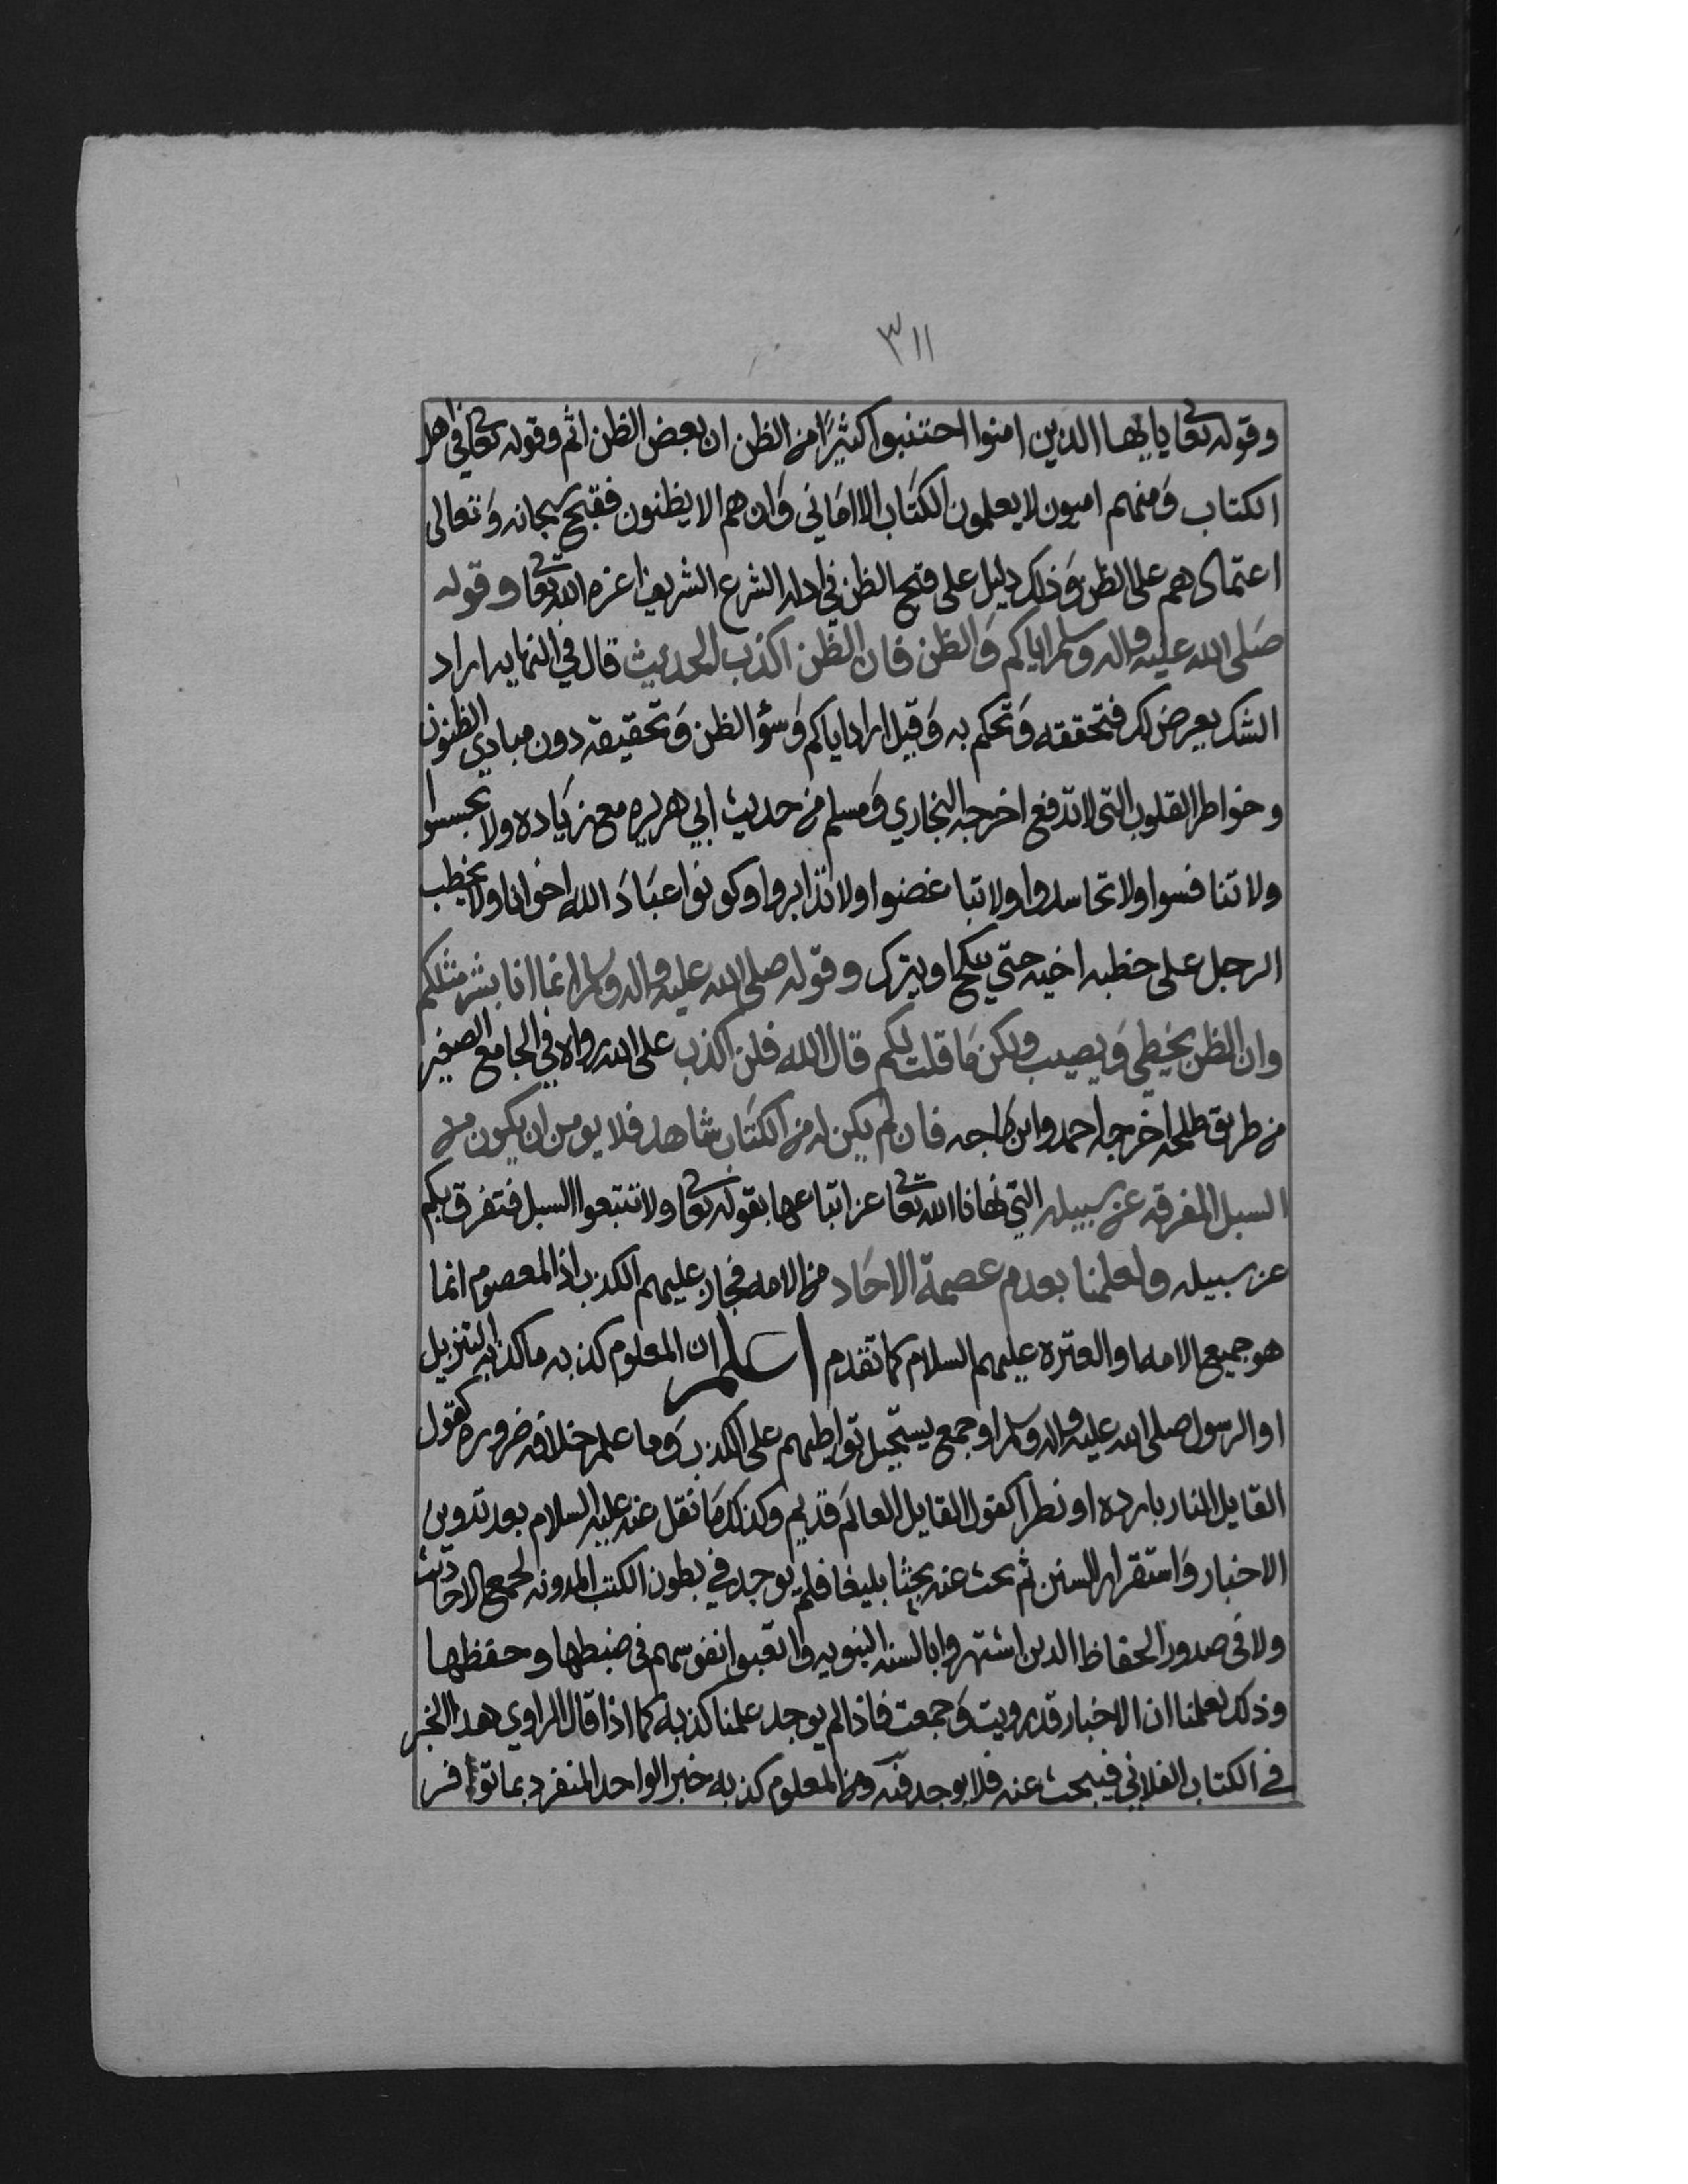 ٣١١
وقوله تعا ياايها الذين امنوا اجتنبوا كثيرًا من الظن ان بعض الظن اثم وقوله تعا في اهل
الكتاب وَمنهم اميون لا يعلمون الكتاب الا امَاني وَان هم الا يظنون فقبح سبحانه وَتعالى
اعتمادهم على الظن وَذلك دليل على قبح الظن في ادله الشرع الشريف اعزه الله تعا وقوله
صَلى الله عليه واله وسلم اياكم وَالظن فان الظن اكذب الحديث قال في النهايه اراد
الشك يعرض لك فتحققه وَتحكم به وَقيل اراد اياكم وَسؤ الظن وَتحقيقه دون مبادي الظنون
وخواطر القلوب التي لا تدفع اخرجه البخاري وَمسلم من حديث ابي هريره مع زيَاده ولا تجسسوا
ولا تنافسوا ولا تحاسدوا ولا تباغضوا ولا تدابروا وكونوا عبَادَ الله اخوانا ولا يخطب
الرجل على خطبه اخيه حتي ينكح او يترك وقوله صلى الله عليه واله وسلم انما انا بشر مثلكم
وان الظن يخطي وَيصيب ولكن مَا قلت لكم قال الله فلن اكذب على الله رواه في الجامع الصغير
من طريق طلحه اخرجه احمد وابن ماجه فان لم يكن له من الكتَاب شاهد فلا يومن ان يكون من
السبل المفرقه عن سبيله التي نهانا الله تعا عن اتباعها بقوله تعا ولا تتبعوا السبل فتفرق بكم
عن سبيله ولعلمنا بعدم عصمة الاحَاد من الامه فجاز عليهم الكذب اذ المعصوم انما
هو جميع الامه او العتره عليهم السلام كما تقدم اعلم ان المعلوم كذبه ما كذبه التنزيل
او الرسول صلى الله عليه واله وسلم او جمع يستحيل تواطيهم على الكذب وَما علم خلافه ضروره كقول
القايل النار بارده او نظرا كقول القايل العالم قديم وكذلك مَا نقل عنه عليه السلام بعد تدوين
الاخبار وَاستقرار السنن ثم بحث عنه بحثا بليغا فلم يوجد في بطون الكتب المدونه لجمع الاحاديث
ولا في صدور الحفاظ الدين اشتهروا بالسنه النبويه واتعبوا انفسهم في ضبطها وحفظها
وذلك لعلمنا ان الاخبار قد رويت وَجمعت فاذا لم يوجد علمنا كذبه كما اذا قال الراوي هدا الخبر
في الكتاب الفلاني فيبحث عنه فلا يوجد فيه ومن المعلوم كذبه خبر الواحد المنفرد بما توافر